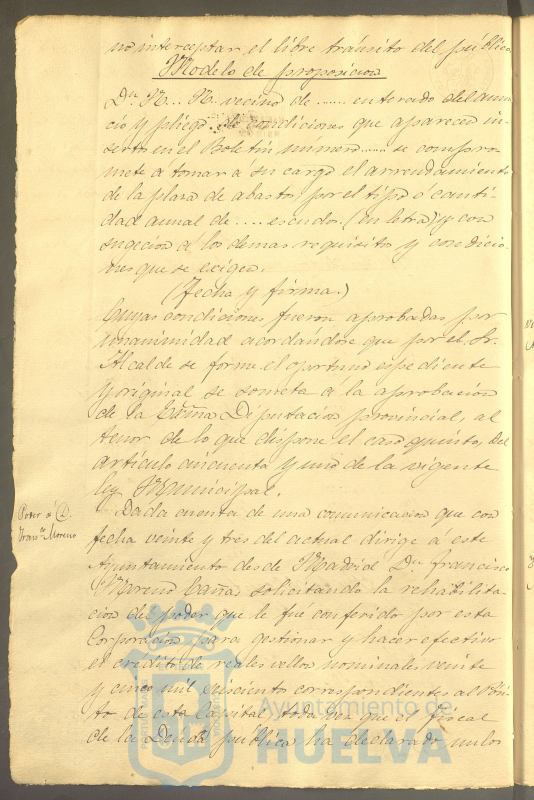 no interceptar el libre tránsito del público
Modelo de proposicion
Dn. N... N. vecino de ...... enterado del anun
cio y pliego de condiciones que aparecen in-
serto en el Boletin número ...... se compro
mete á tomar á su cargo el arrendamiento
de la plaza de abasto, por el tipo ó canti-
dad anual de .... escudos. (en letra) y con
sugecion á los demas requisitos y condicio-
nes que se exigen.
(Fecha y firma.)
Cuyas condiciones fueron aprobadas por
unanimidad acordandose que por el Sr.
Alcalde se forme el oportuno espediente
y original se someta á la aprobacion
de la Excma Diputacion provincial, al
tenor de lo que dispone el caso quinto, del
artículo cincuenta y uno de la vigente
ley Municipal.
Poder a D.
Franco. Moreno
Dada cuenta de una comunicacion que con
fecha veinte y tres del actual dirige á este
Ayuntamiento desde Madrid Dn. Francisco
Moreno Caña, solicitando la rehabilita
cion del poder que le fué conferido por esta
Corporacion para gestionar y hacer efectivo
el credito de reales vellon nominales veinte
y cinco mil seiscientos correspondientes al Pósi
to de esta Capital, toda vez que el Fiscal
de la Deuda pública ha declarado nulos
Ayuntamiento de
HUELVA